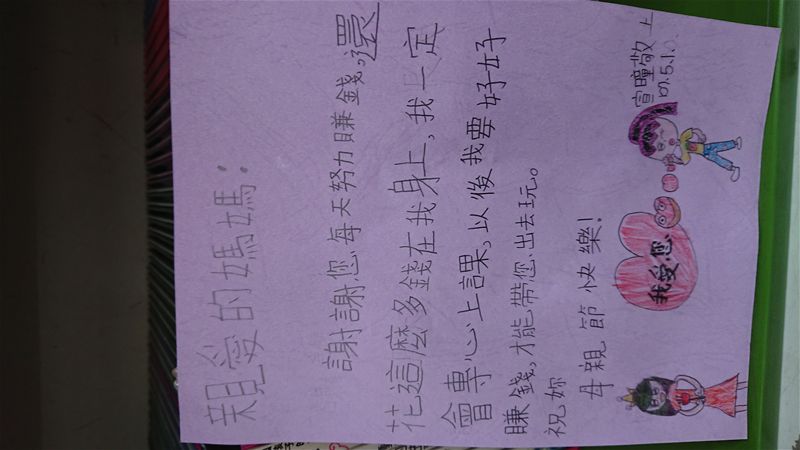 親愛的媽媽：
謝謝您每天努力賺錢，還
花這麼多錢在我身上，我一定
會專心上課，以後我要好好
賺錢，才能帶您出去玩。
祝妳
母親節快樂！
我愛您
宣瞳敬上
07.5.1.